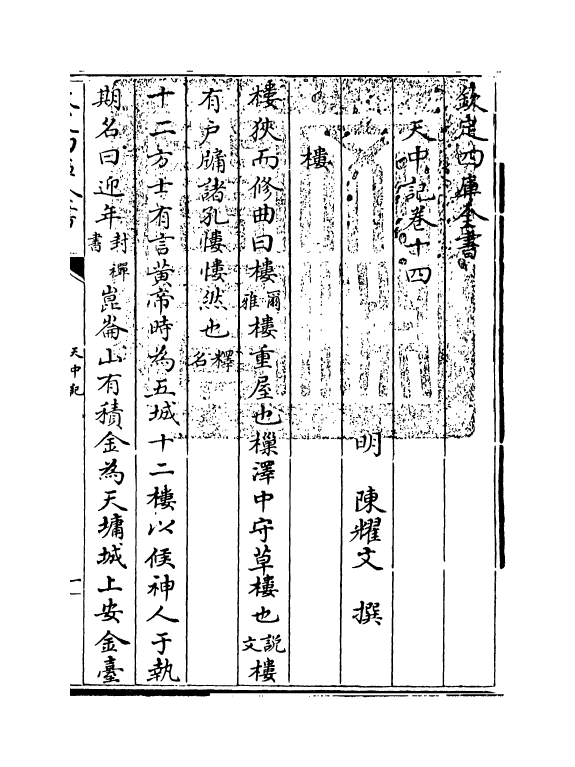 欽定四庫全書
天中記卷十四
明 陳耀文 撰
樓
樓狹而修曲曰樓爾雅樓重屋也樔澤中守草樓也說文樓
有户牖諸孔慺慺然也釋名
十二方士有言黄帝時為五城十二樓以候神人于執
期名曰迎年封禪書崑崙山有積金為天墉城上安金臺
天中記